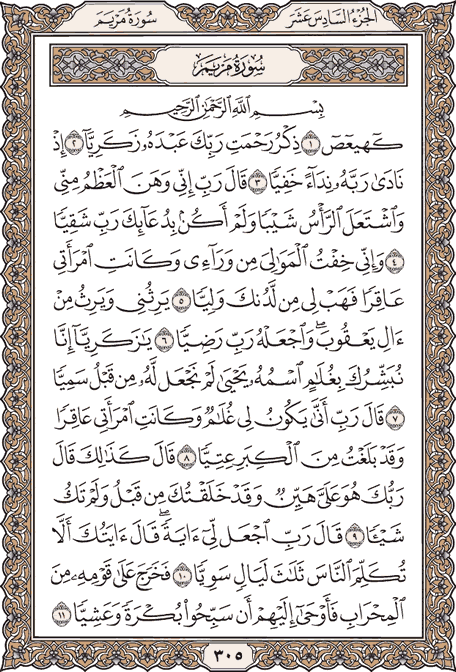 الجزء السادس عشر
سورة مريم
سورة مريم
بِسْمِ ٱللَّهِ ٱلرَّحْمَٰنِ ٱلرَّحِيمِ
كٓهيعٓصٓ ١ ذِكْرُ رَحْمَتِ رَبِّكَ عَبْدَهُۥ زَكَرِيَّآ ٢ إِذْ
نَادَىٰ رَبَّهُۥ نِدَآءً خَفِيًّا ٣ قَالَ رَبِّ إِنِّي وَهَنَ ٱلْعَظْمُ مِنِّي
وَٱشْتَعَلَ ٱلرَّأْسُ شَيْبًا وَلَمْ أَكُنۢ بِدُعَآئِكَ رَبِّ شَقِيًّا
٤ وَإِنِّي خِفْتُ ٱلْمَوَٰلِيَ مِن وَرَآءِي وَكَانَتِ ٱمْرَأَتِي
عَاقِرًا فَهَبْ لِي مِن لَّدُنكَ وَلِيًّا ٥ يَرِثُنِي وَيَرِثُ مِنْ
ءَالِ يَعْقُوبَۖ وَٱجْعَلْهُ رَبِّ رَضِيًّا ٦ يَٰزَكَرِيَّآ إِنَّا
نُبَشِّرُكَ بِغُلَٰمٍ ٱسْمُهُۥ يَحْيَىٰ لَمْ نَجْعَل لَّهُۥ مِن قَبْلُ سَمِيًّا
٧ قَالَ رَبِّ أَنَّىٰ يَكُونُ لِي غُلَٰمٌ وَكَانَتِ ٱمْرَأَتِي عَاقِرًا
وَقَدْ بَلَغْتُ مِنَ ٱلْكِبَرِ عِتِيًّا ٨ قَالَ كَذَٰلِكَ قَالَ
رَبُّكَ هُوَ عَلَيَّ هَيِّنٌ وَقَدْ خَلَقْتُكَ مِن قَبْلُ وَلَمْ تَكُ
شَيْـًٔا ٩ قَالَ رَبِّ ٱجْعَل لِّيٓ ءَايَةًۖ قَالَ ءَايَتُكَ أَلَّا
تُكَلِّمَ ٱلنَّاسَ ثَلَٰثَ لَيَالٍ سَوِيًّا ١٠ فَخَرَجَ عَلَىٰ قَوْمِهِۦ مِنَ
ٱلْمِحْرَابِ فَأَوْحَىٰٓ إِلَيْهِمْ أَن سَبِّحُوا۟ بُكْرَةً وَعَشِيًّا ١١
٣٠٥